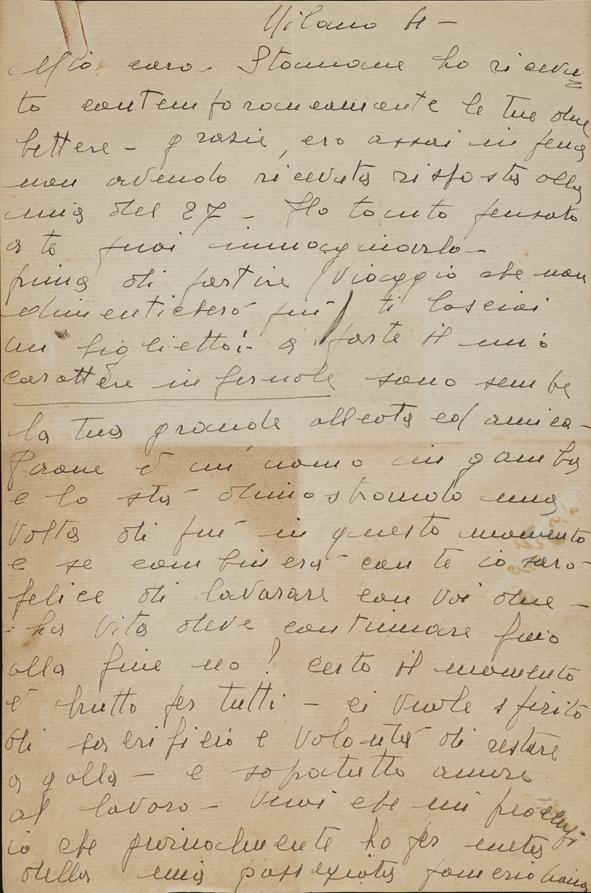 Milano
Mio caro. Stamane ho ricevu
to contemporaneamente le tue due
lettere - grazie, ero assai in pena
non avendo ricevuta risposta alla
mia del 27 - Ho tanto pensato
a te puoi immaginarlo -
prima di partire (viaggio che non
dimenticherò più) ti lasciai
un biglietto: a parte il mio
carattere infernale sono sempre
la tua grande alleata ed amica -
è un uomo in gamba
e lo sta dimostrando una
volta di più in questo momento
e se combinerà con te io sarò
felice di lavorare con voi due -
La vita deve continuare fino
alla fine no! certo il momento
è brutto per tutti - ci vuole spirito
di sacrificio e volontà di restare
a galla - e sopratutto amore
al lavoro - vuoi che mi
io che ho per
della mia